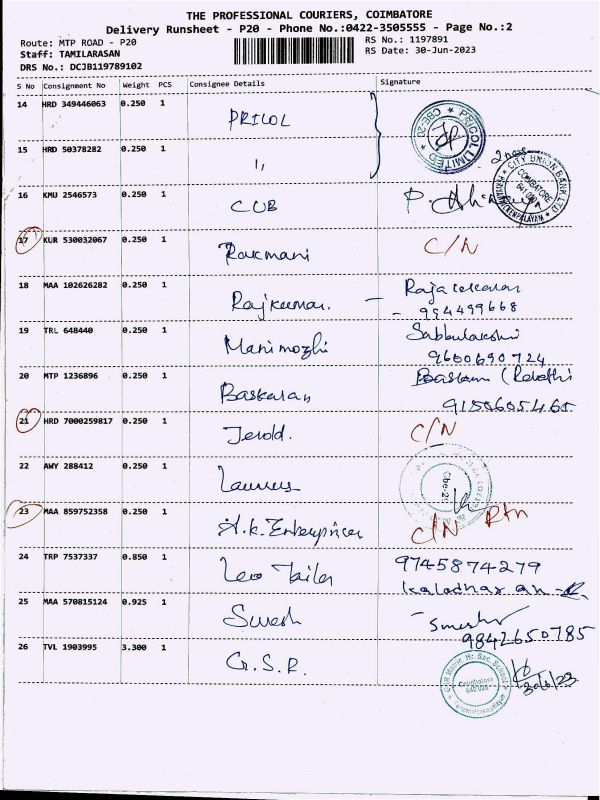 THE PROFESSIONAL COURIERS, COIMBATORE
Delivery Runsheet - P20 - Phone No.:0422-3505555 - Page No.:2
Route: MTP ROAD - P20
RS No.: 1197891
Staff: TAMILARASAN
RS Date: 30-Jun-2023
DRS No.: DCJB119789102
S No Consignment No Weight PCS Consignee Details Signature
14 HRD 349446063 0.250 1 PRICOL
PRICOL LIMITED CBE-20
15 HRD 50378282 0.250 1 1,
CITY UNION BANK LTD COIMBATORE
16 KMU 2546573 0.250 1 CUB
17 KUR 530032067 0.250 1 Rakmani C/N
18 MAA 102626282 0.250 1 Rajkumar. - Rajasekaran
- 994499668
19 TRL 648440 0.250 1 Manimozhi Sabbulakshmi
9600690724
20 MTP 1236896 0.250 1 Baskaran Baskaran (Revathi
9150605465
21 HRD 7000259817 0.250 1 Jerold. C/N
22 AWY 288412 0.250 1
23 MAA 859752358 0.250 1 A.K. Enterprices C/N Rtn
24 TRP 7537337 0.850 1 Leo Tailor 9745874279
Kaladharan
25 MAA 570815124 0.925 1 Suresh
9842650785
26 TVL 1903995 3.300 1 G.S.R.
30/6/23
Hr. Sec. School
Coimbatore